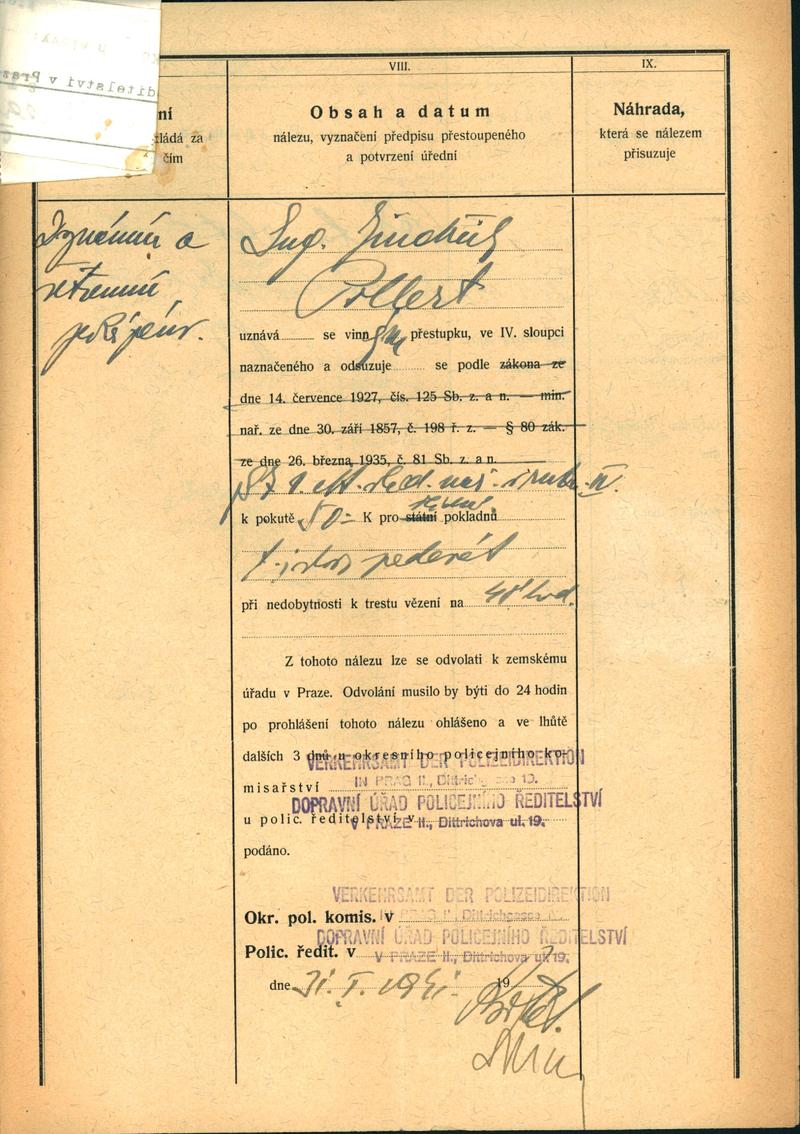 ditelství v Praz
ní
kládá za
čím
VIII.
Obsah a datum
nálezu, vyznačení předpisu přestoupeného
a potvrzení úřední
IX.
Náhrada,
která se nálezem
přisuzuje
a
Ing. Jindřich
Pollert
uznává se vinným přestupku, ve IV. sloupci
naznačeného a odsuzuje se podle zákona ze
dne 14. července 1927, čís. 125 Sb. z. a n. — min.
nař. ze dne 30. září 1857, č. 198 ř. z. — § 80 zák.
ze dne 26. března 1935, č. 81 Sb. z. a n.
IV.
k pokutě 50 = K pro státní pokladnu
při nedobytnosti k trestu vězení na 48 hod.
Z tohoto nálezu lze se odvolati k zemskému
úřadu v Praze. Odvolání musilo by býti do 24 hodin
po prohlášení tohoto nálezu ohlášeno a ve lhůtě
dalších 3 dnů u okresního policejního ko-
VERKEHRSAMT DER POLIZEIDIREKTION
IN PRAG II., Dittrichgasse 19.
misařství
DOPRAVNÍ ÚŘAD POLICEJNÍHO ŘEDITELSTVÍ
u polic. ředitelství v
V PRAZE II., Dittrichova ul. 19.
podáno.
VERKEHRSAMT DER POLIZEIDIREKTION
IN PRAG II., Dittrichgasse
Okr. pol. komis. v
DOPRAVNÍ ÚŘAD POLICEJNÍHO ŘEDITELSTVÍ
Polic. ředit. v
V PRAZE II., Dittrichova ul. 19.
dne 31. I. 1941. 19